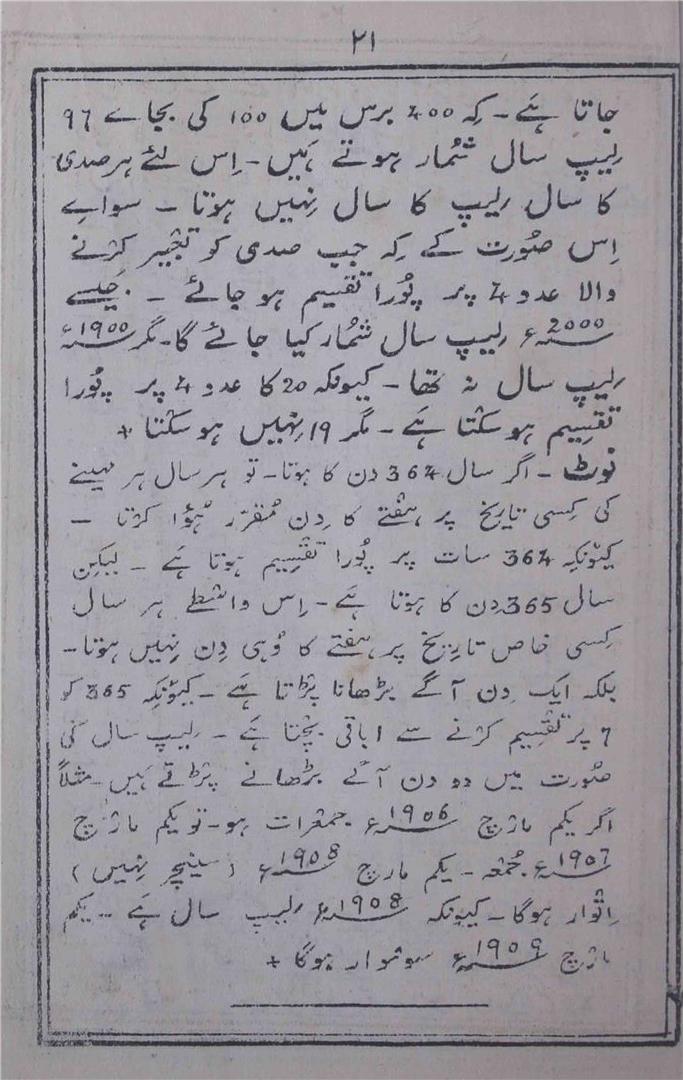 ۲۱
جاتا ہَے۔ کِہ 400 برس میں 100 کی بجاے 97
لِیپ سال شُمار ہوتے ہَیں۔ اِس لئے ہر صدی
کا سال لِیپ کا سال نِہیں ہوتا ۔ سواے
اِس صُورت کے کِہ جب صدی کو تعبِیر کرْنے
والا عدد 4 پر پُورا تقْسیم ہو جائے ۔ جَیسے
2000ء لِیپ سال شُمار کیا جائے گا۔ مگر 1900ء
لِیپ سال نہ تھا ۔ کیونکہ 20 کا عدد 4 پر پُورا
تقْسِیم ہو سکْتا ہَے ۔ مگر 19 نِہیں ہو سکْتا +
نوٹ ۔ اگر سال 364 دن کا ہوتا۔ تو ہر سال ہر مہینے
کی کِسی تارِیخ پر ہفْتے کا دِن مُقرّر ہُؤا کرْتا ۔
کیُونکِہ 364 سات پر پُورا تقْسِیم ہوتا ہَے ۔ لیکِن
سال 365 دِن کا ہوتا ہَے۔ اِس واسْطے ہر سال
کِسی خاص تارِیخ پر ہفْتے کا وُہی دِن نِہیں ہوتا۔
بلکہ ایک دِن آگے بڑھانا پڑْتا ہَے ۔ کیُونکِہ 365 کو
7 پر تقْسِیم کرْنے سے 1 باقی بچْتا ہَے ۔ لِیپ سال کی
صُورت میں دو دن آگے بڑھانے پڑْتے ہَیں۔ مثلاً
اگر یکم مارْچ 1906ء جمعْرات ہو۔ تو یکم مارْچ
1907ء جُمْعہ ۔ یکم مارچ 1908ء (سینِچر نِہیں)
اِتْوار ہوگا ۔ کیونکہ 1908ء لِیپ سال ہَے ۔ یکم
مارْچ 1909ء سوموار ہوگا +